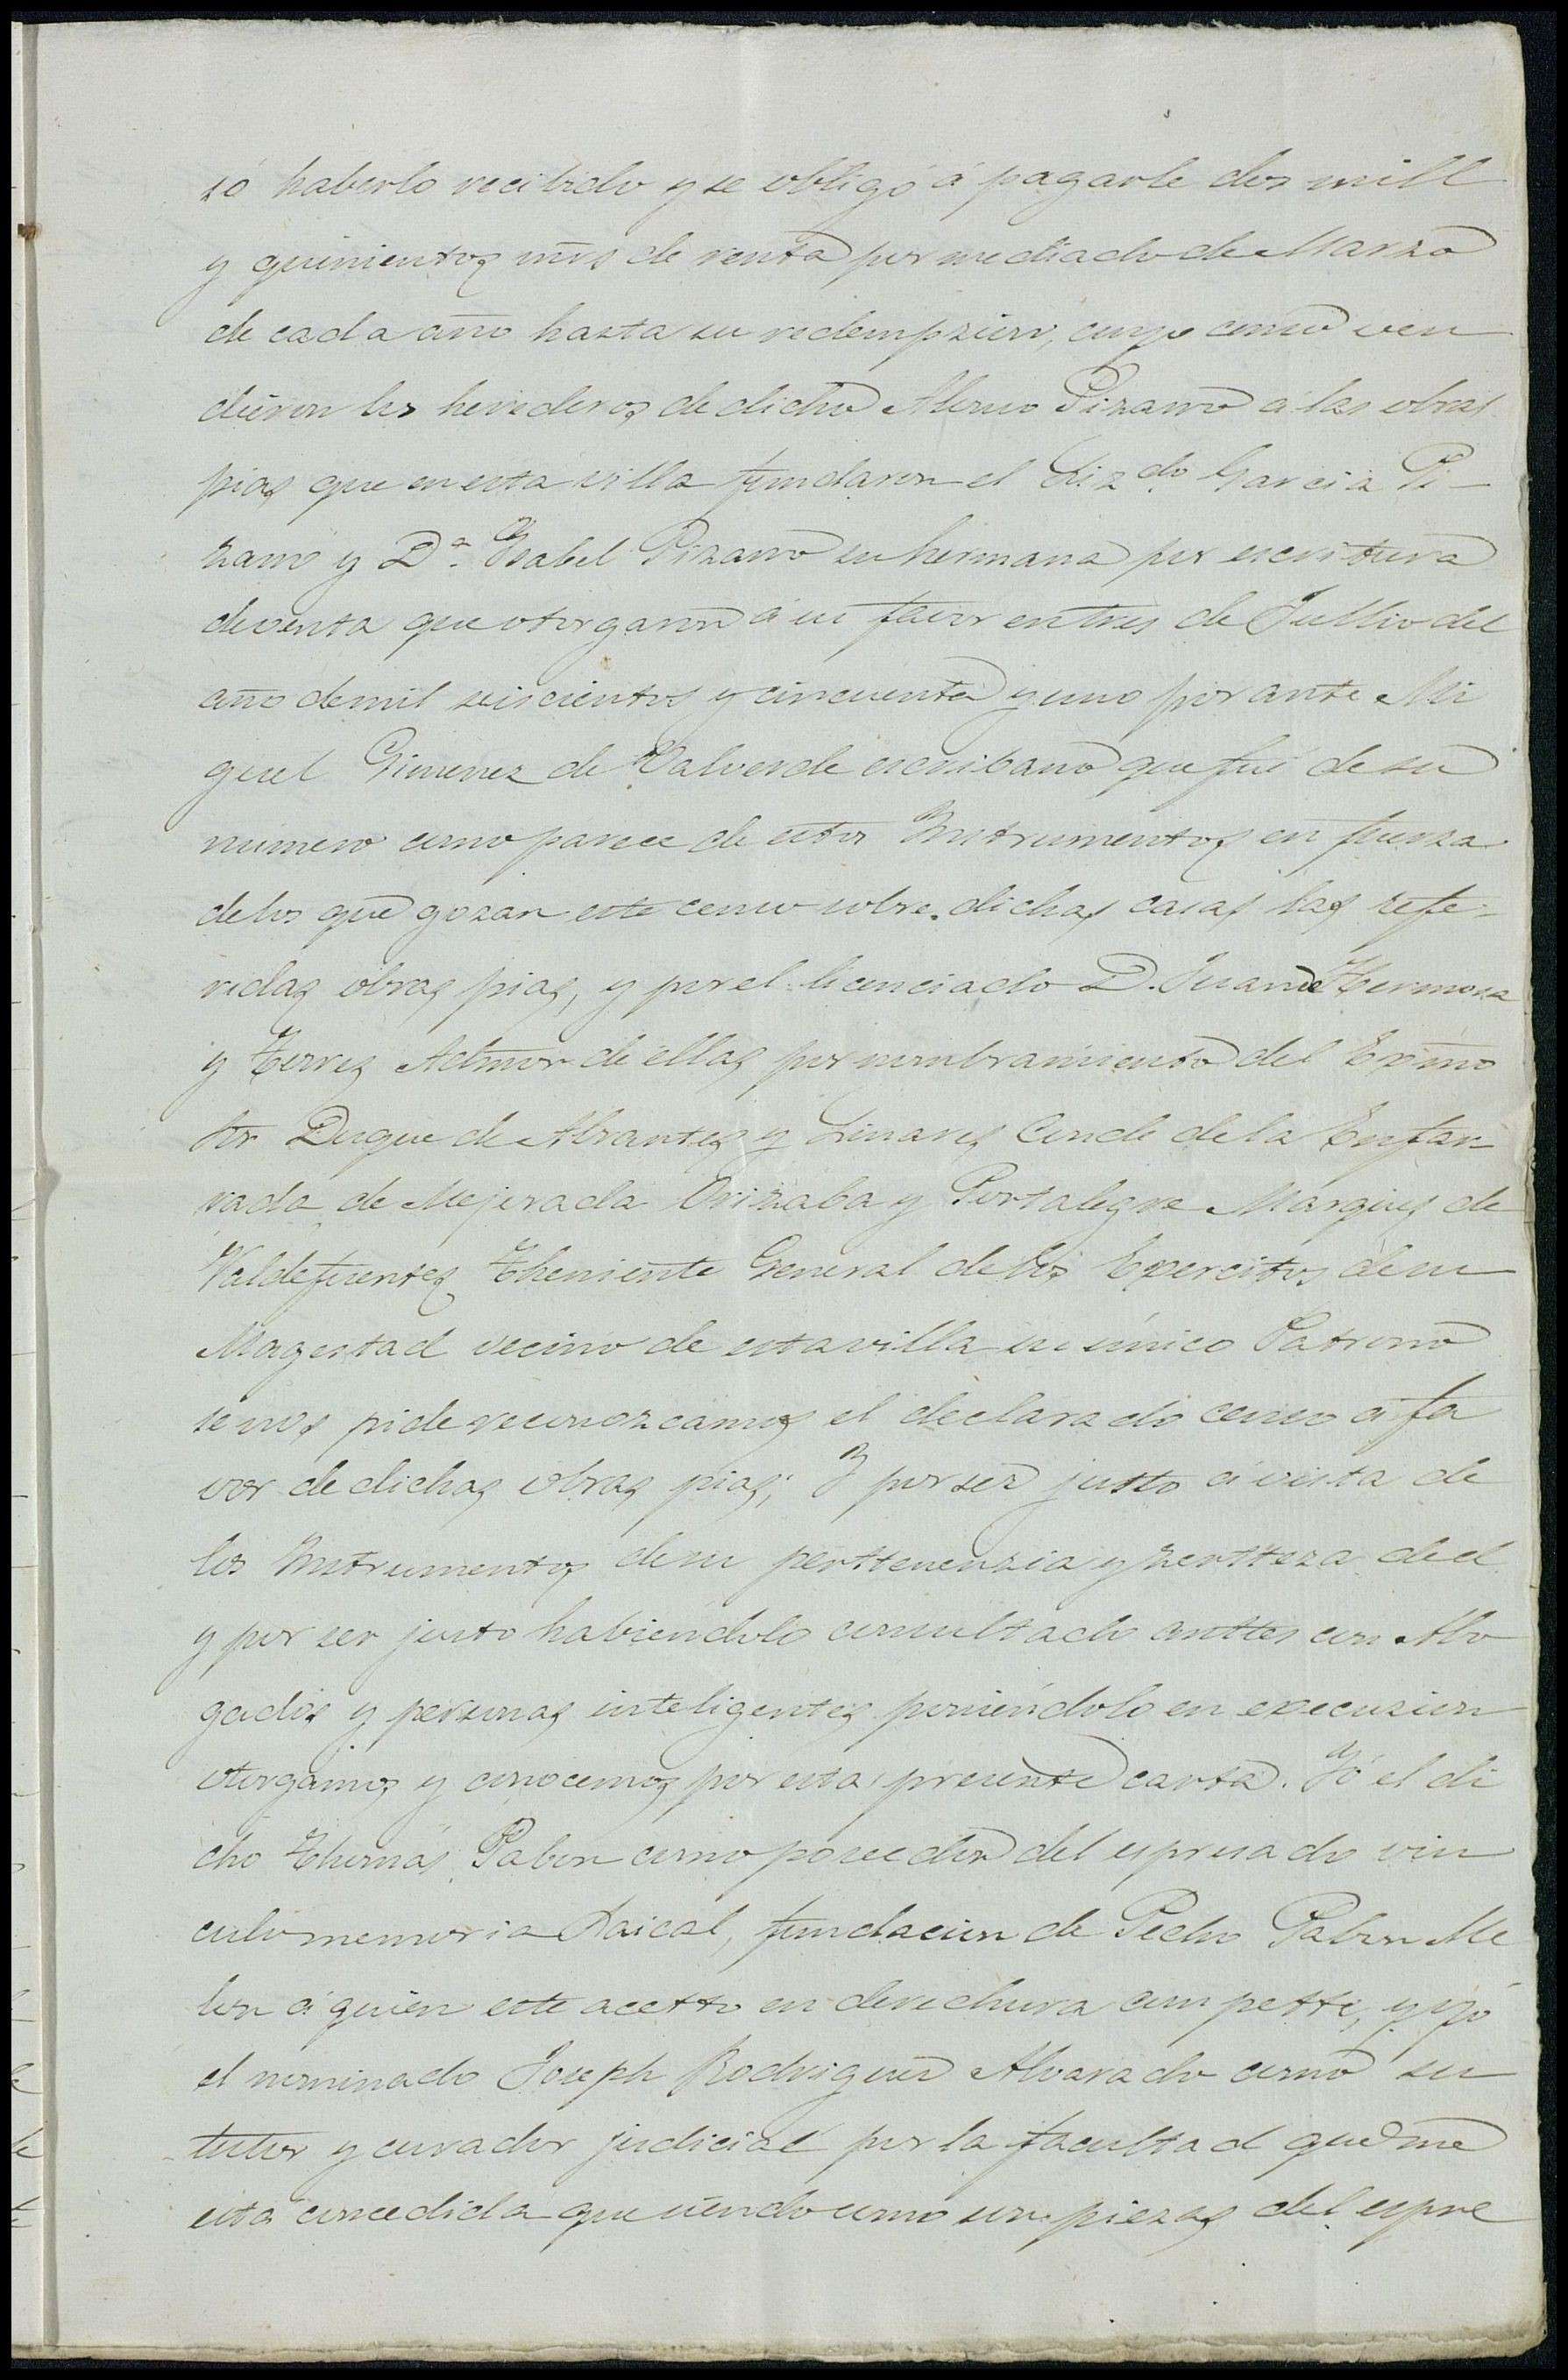 só haberlo recibido y se obligó á pagarle dos mill
y quinientos mrs de renta por mediado de Marzo
de cada año hasta su redempzion, cuyo censo ven
dieron los herederos de dicho Alonso Pizarro á las obras
pias que en esta villa fundaron el Lizdo. Garcia Pi-
zarro y Da. Ysabel Pizarro su hermana por escritura
de venta que otorgaron á su favor en tres de Jullio del
año de mil seiscientos y cincuenta y uno por ante Mi
guel Gimenez de Valverde escribano que fué de su
numero como parece de estos Instrumentos en fuerza
de los que gozan este censo sobre dichas casas las refe-
ridas obras pias, y por el licenciado D. Juan de Hermosa
y Torres Admor de ellas por nombramiento del Exmo
Sor Duque de Abrantes y Linares Conde de la Enjar
rada de Mejorada Orizaba y Portalegre Marques de
Valdefuentes Theniente General de los Exercitos de su
Magestad vecino de esta villa su único Patrono
se nos pide reconozcamos el declarado censo á fa
vor de dichas obras pias; Y por ser justo á vista de
los Instrumentos de su perttenenzia y zertteza de el
y por ser justo habiendolo consultado anttes con Abo
gados y personas inteligentes poniéndolo en execuzion
otorgamos y conocemos por esta presente carta. Yó el di
cho Thomás Pabon como poseedor del espresado vin
culo memoria Laical, fundacion de Pedro Pabon Me
lon á quien este acetto en derechura compette, y yó
el nominado Joseph Rodriguez Alvarado como su
tutor y curador judicial por la facultad que me
está concedida que siendo como son piezas del espre